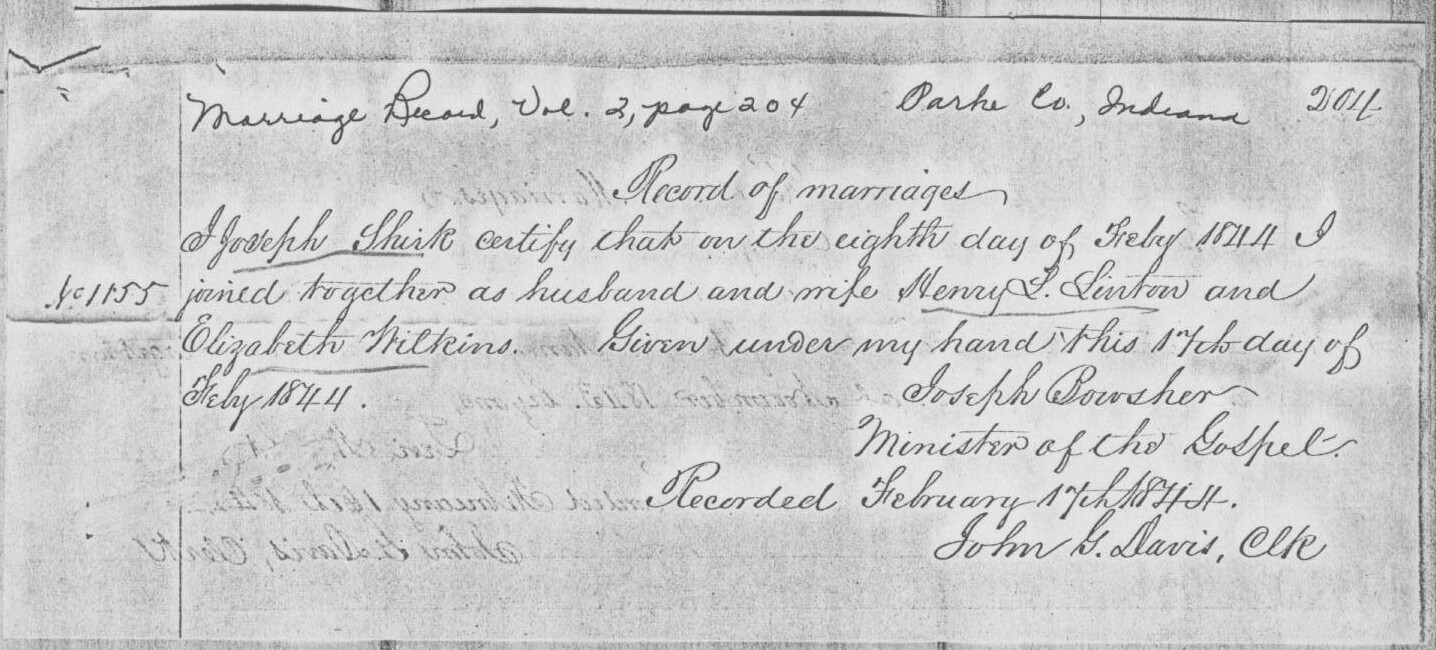 Marriage Record, Vol. 2, page 204 Parke Co., Indiana 204
Record of marriages
I Joseph Shirk certify that on the eighth day of Feby 1844 I
No 1155 joined together as husband and wife Henry L. Linton and
Elizabeth Wilkins. Given under my hand this 17th day of
Feby 1844.
Joseph Bowsher
Minister of the Gospel.
Recorded February 17th 1844.
John G. Davis, Clk